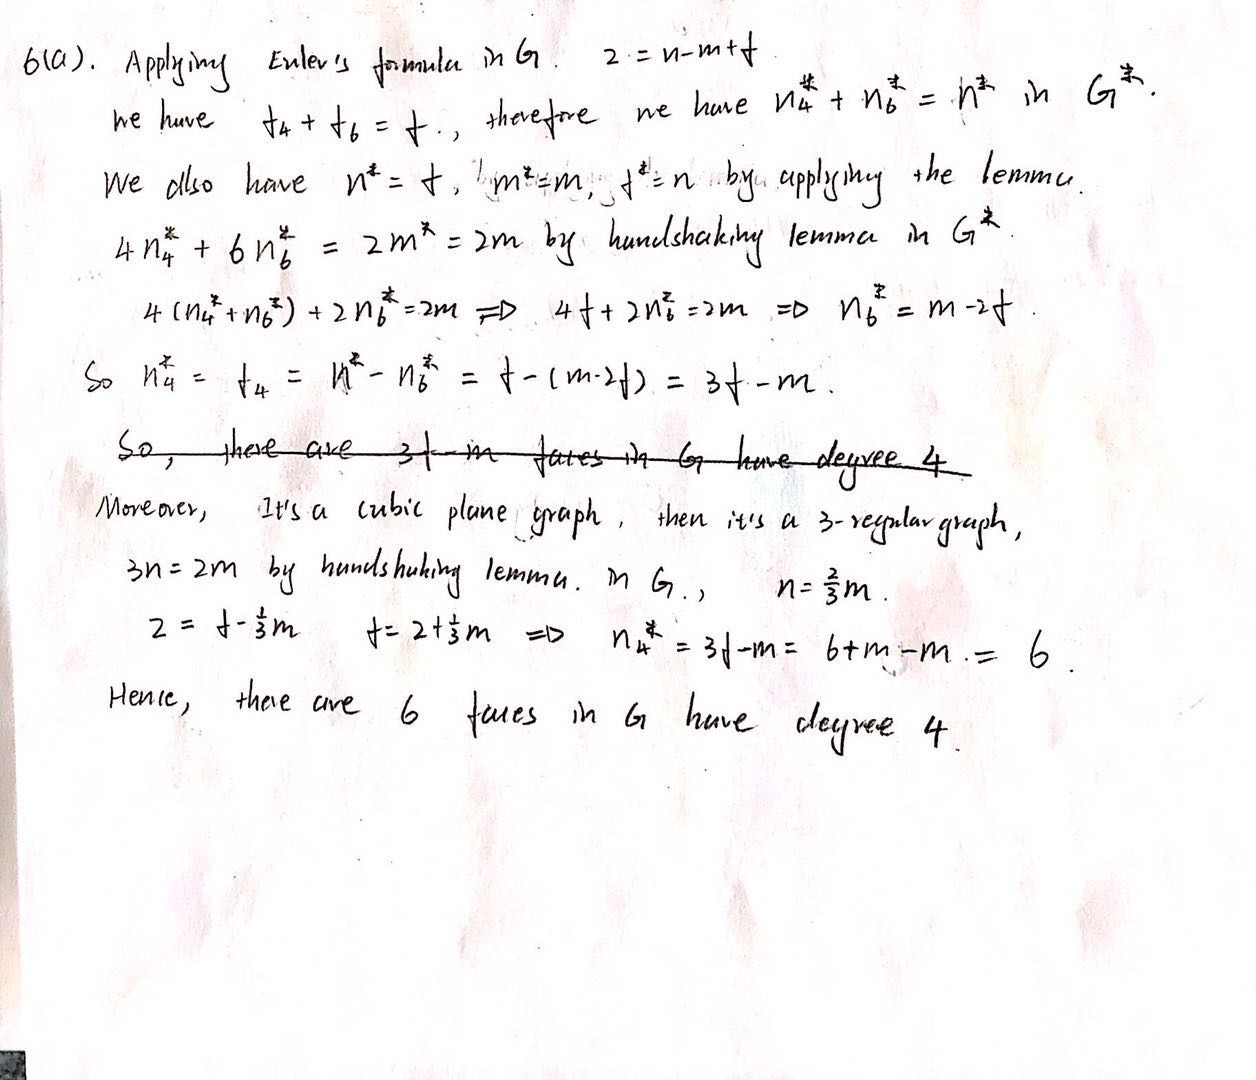 6(a). Applying Euler's formula in G. 2 = n-m+f
We have f₄ + f₆ = f., therefore we have n₄* + n₆* = n* in G*.
We also have n* = f, m*=m, f*=n by applying the lemma.
4n₄* + 6n₆* = 2m* = 2m by handshaking lemma in G*.
4(n₄*+n₆*) + 2n₆* = 2m ⇒ 4f + 2n₆* = 2m ⇒ n₆* = m-2f.
So n₄* = f₄ = n* - n₆* = f-(m-2f) = 3f-m.
So, there are 3f-m faces in G have degree 4
Moreover, It's a cubic plane graph, then it's a 3-regular graph,
3n = 2m by handshaking lemma. in G., n = ⅔m.
2 = f-⅓m f = 2+⅓m ⇒ n₄* = 3f-m = 6+m-m. = 6.
Hence, there are 6 faces in G have degree 4.